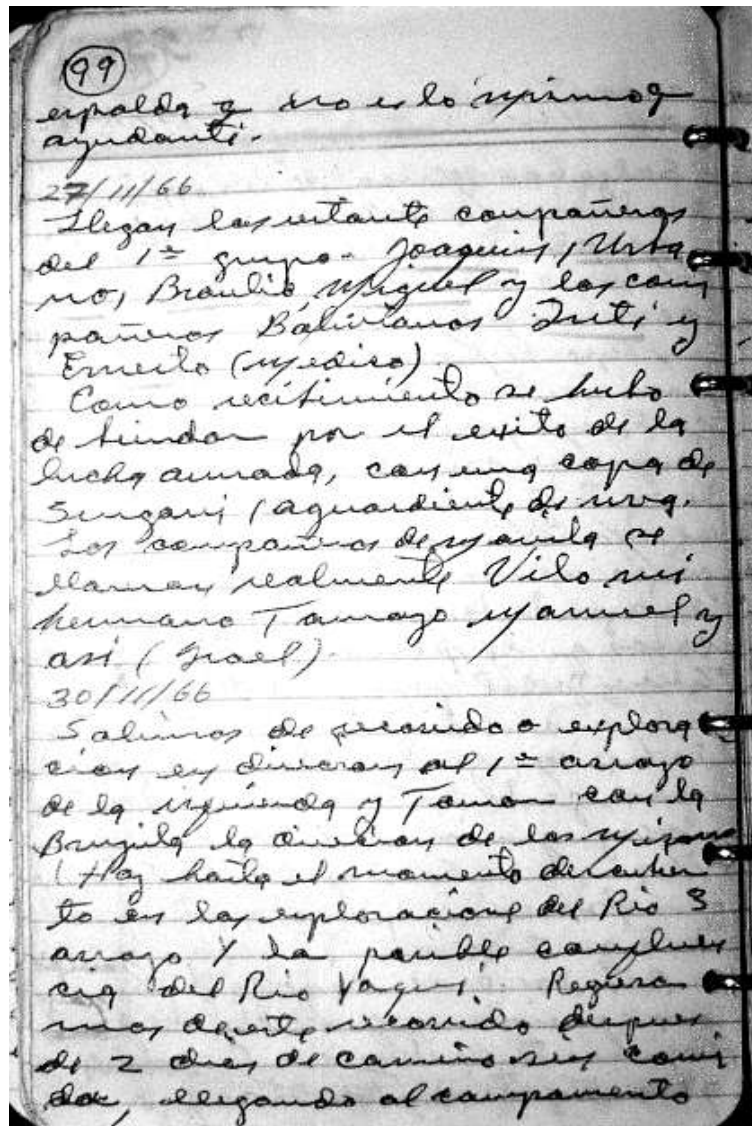 99
espalda q no es lo mismo q
ayudante.
27/11/66
Llegan los restante compañeros
del 1= grupo - Joaquin, Urba
no, Braulio, Miguel y los com
pañeros Bolivianos Inti y
Ernesto (medico)
Como recibimiento se hubo
de brindar por el exito de la
lucha armada, con una copa de
Singani (aguardiente de uva.
Los compañeros de manila se
llaman realmente Vilo mi
hermano Tamayo Manuel y
asi (Israel)
30/11/66
Salimos de recorrido o explora
cion en direccion al 1= arroyo
de la izquierda y Toman con la
Brujula la direccion de los mismo
(Hay hasta el momento descubier
to en las exploracione del Rio 3
arroyo y la posible confluen
cia del Rio Yaqui. Regresa
mos de este recorrido despues
de 2 dias de camino sin comi
da, llegando al campamento